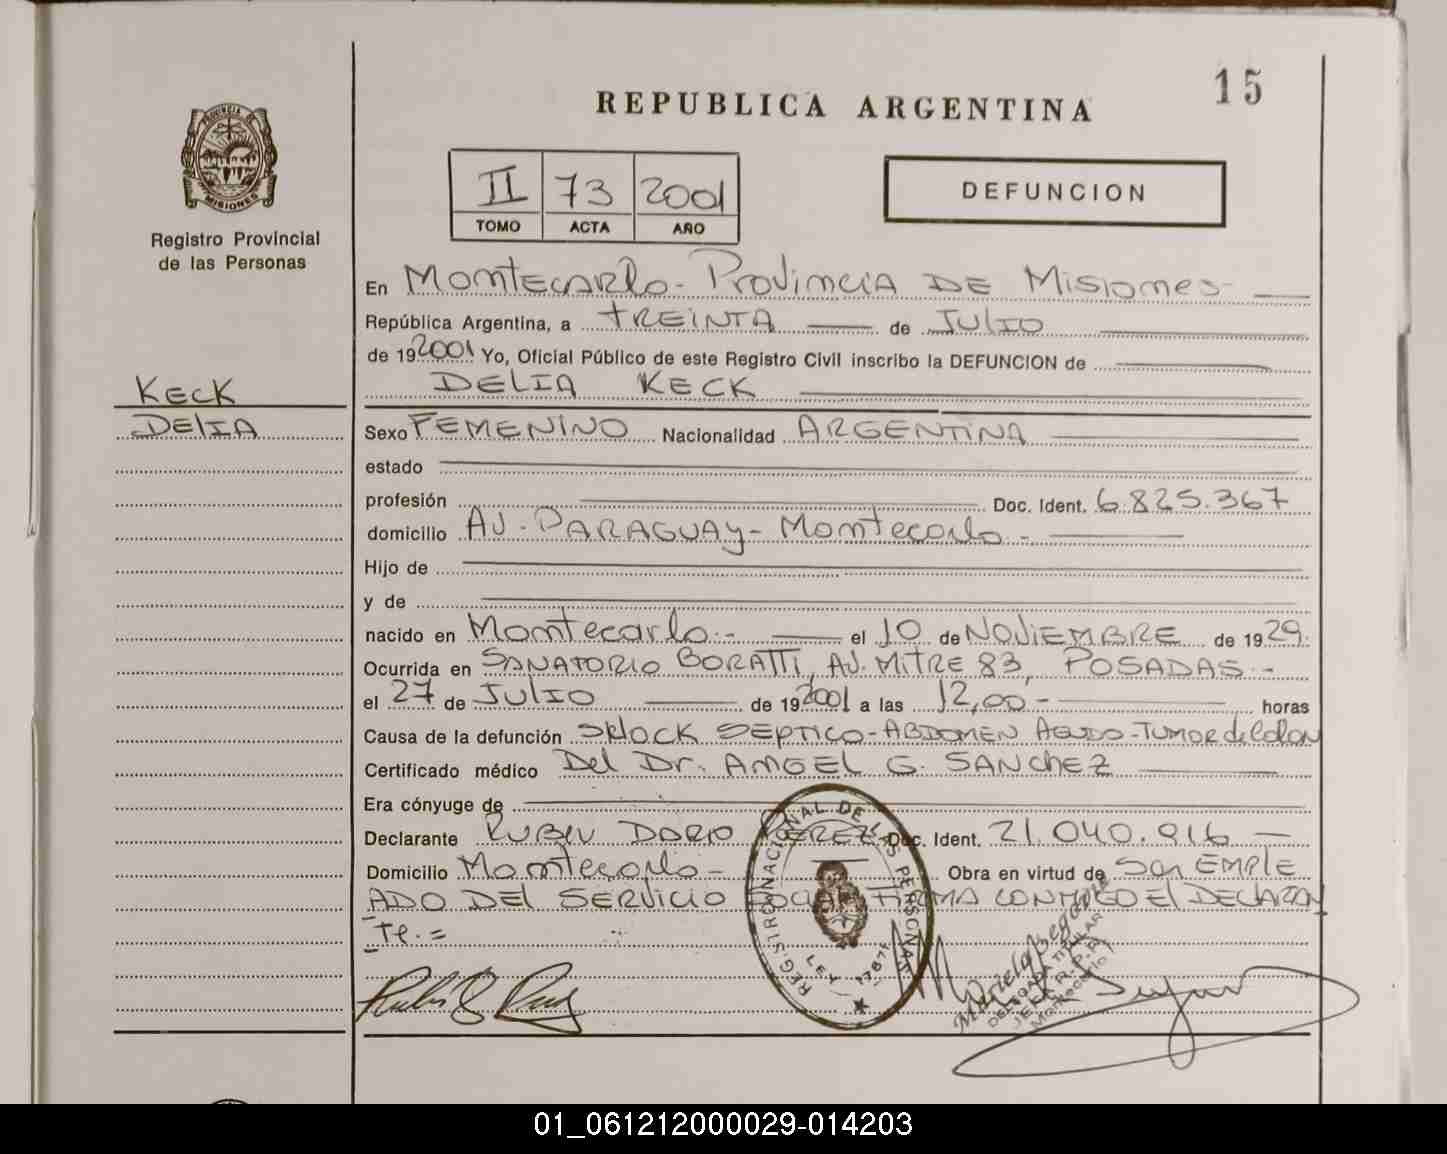 15
REPUBLICA ARGENTINA
PROVINCIA DE
MISIONES
Registro Provincial
de las Personas
II 73 2001
TOMO ACTA AÑO
DEFUNCION
En Montecarlo - Provincia DE Misiones -
República Argentina, a TREINTA de JULIO
de 192001 Yo, Oficial Público de este Registro Civil inscribo la DEFUNCION de
DELIA KECK
KECK
DELIA
Sexo FEMENINO Nacionalidad ARGENTINA
estado
profesión Doc. Ident. 6.825.367
domicilio AV. PARAGUAY - Montecarlo -
Hijo de
y de
nacido en Montecarlo - el 10 de NOVIEMBRE de 1929.
Ocurrida en SANATORIO BORATTI, AV. MITRE 83, POSADAS -
el 27 de JULIO de 192001 a las 12,00 - horas
Causa de la defunción SHOCK SEPTICO - ABDOMEN AGUDO - TUMOR de Colon
Certificado médico Del Dr. ANGEL G. SANCHEZ
Era cónyuge de
Declarante RUBEN DARIO PEREZ Doc. Ident. 21.040.916 —
Domicilio Montecarlo - Obra en virtud de Ser EMPLE
ADO DEL SERVICIO SOCIAL FIRMA CONMIGO El DECLARAN
Te.=
REGISTRO NACIONAL DE LAS PERSONAS
LEY 17671
Mariela Begaur
DELEGADA TITULAR
Montecarlo
01_061212000029-014203